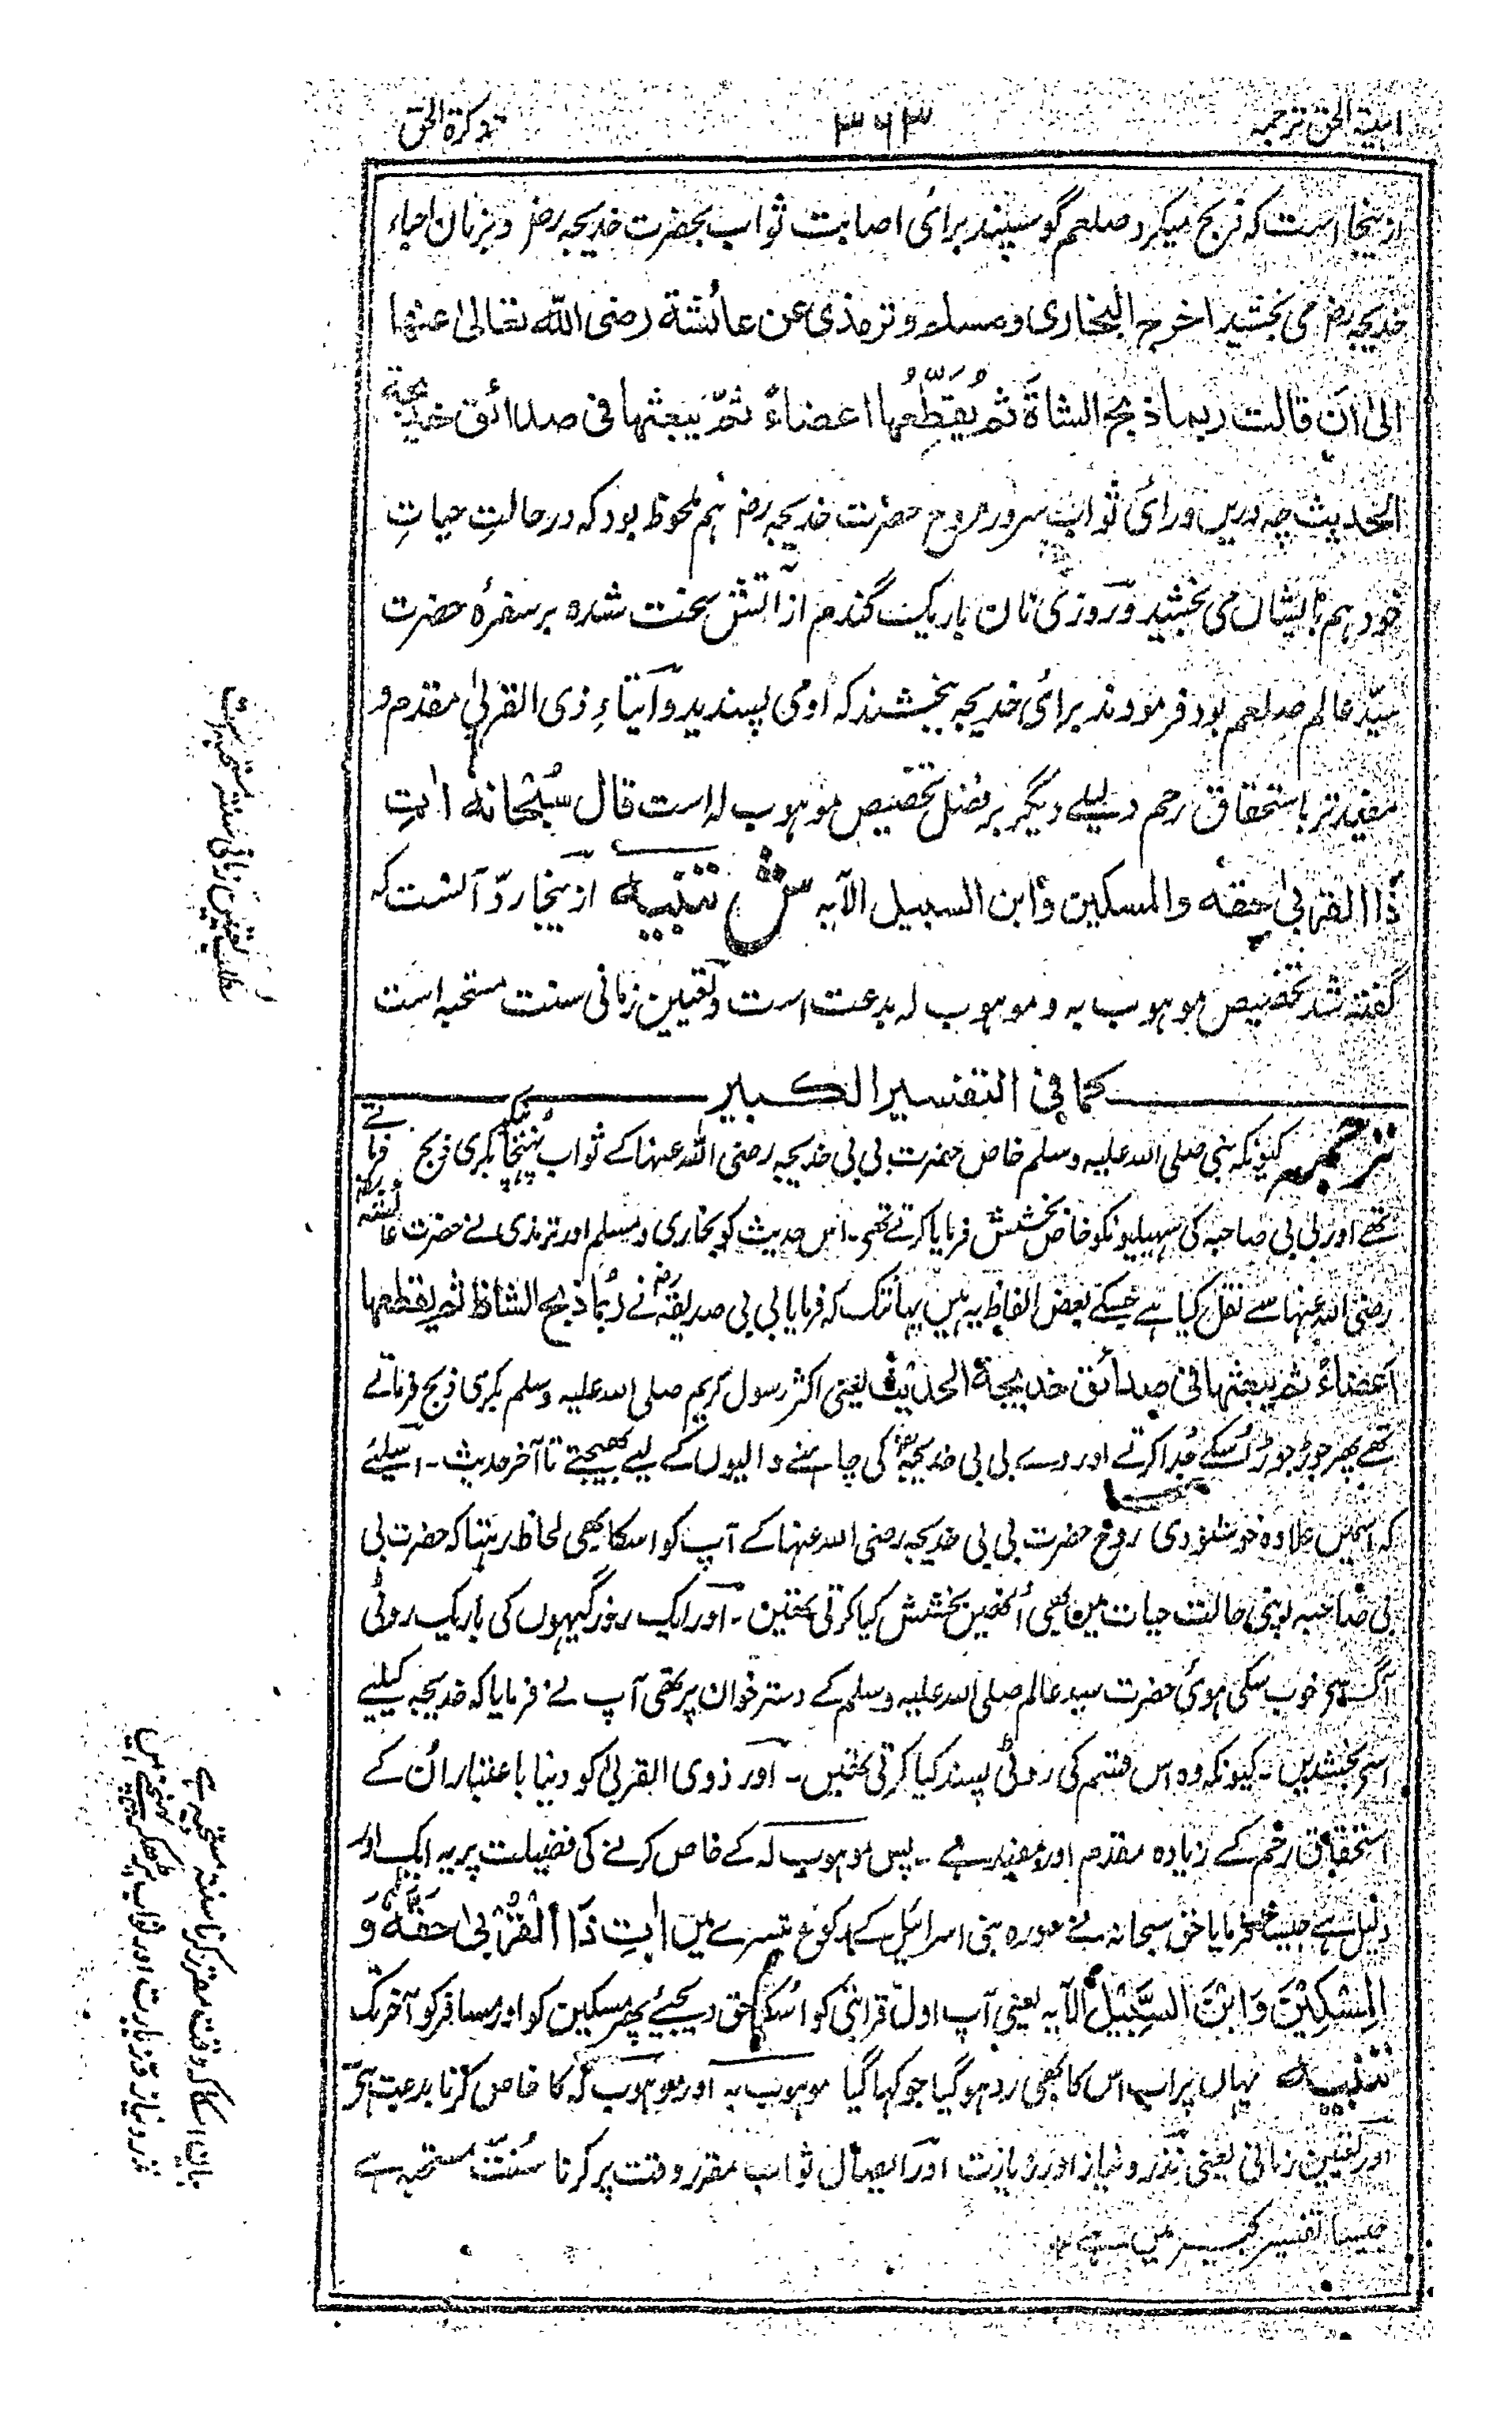 ابینۃ الحق ترجمہ ۳۶۳ تذکرۃ الحق
ازینجا است کہ ذبح میکرد صلعم گوسپند برائ اصابت ثواب بحضرت خدیجہ رض و بزبان احباء
خدیجہ رض می بخشید اخرج البخاری ومسلم و ترمذی عن عائشة رضی اللہ تعالیٰ عنہا
الیٰ ان قالت ربما ذبح الشاةَ ثم یُقَطِّعُہا اعضاءً ثمّ یبعثہا فی صدائق خدیجۃ
الحدیث چہ درین ورائ ثواب سرور روح حضرت خدیجہ رض ہم ملحوظ بود کہ در حالتِ حیاتِ
خود ہم بایشان می بخشید و روزی نان باریک گندم از آتش سخت شدہ بر سفرۂ حضرت
سیّد عالم صلعم بود فرمودند برائ خدیجہ ببخشند کہ او می پسندید و آیتاءِ ذی القربیٰ مقدم و
مفید تر باستحقاق رحم دلیلے دیگر بر فضل تخصیص موہوب لہ است قال سُبْحَانہٗ اٰتِ
ذَا القربیٰ حقہ والمسکین وابن السبیل الآیہ ش تنبیہ ازینجا ردّ آنست کہ
گفتہ شد تخصیص موہوب بہ و موہوب لہ بدعت است و تعیین زمانی سنت مستحبہ است
کما فی التفسیر الکبیر
ترجمہ کیونکہ نبی صلی اللہ علیہ وسلم خاص حضرت بی بی خدیجہ رضی اللہ عنہا کے ثواب پہنچانیکو بکری ذبح فرماتے
تھے اور بی بی صاحبہ کی سہیلیونکو خاص بخشش فرمایا کرتے تھے۔ اس حدیث کو بخاری و مسلم اور ترمذی نے حضرت عائشہ
رضی اللہ عنہا سے نقل کیا ہے جسکے بعض الفاظ یہ ہیں یہانتک کہ فرمایا بی بی صدیقہ رض نے ربُما ذبح الشاۃ ثم یقطعہا
اعضاءً ثم یبعثہا فی صدائق خدیجة الحدیث یعنی اکثر رسول کریم صلی اللہ علیہ وسلم بکری ذبح فرماتے
تھے پھر جوڑ جوڑ اُسکے جُدا کرتے اور وے بی بی خدیجہ رض کی چاہنے والیوں کے لیے بھیجتے تا آخر حدیث۔ اسلیئے
کہ اسمیں علاوہ خوشنودی روح حضرت بی بی خدیجہ رضی اللہ عنہا کے آپ کو اسکا بھی لحاظ رہتا کہ حضرت بی
بی صاحبہ اپنی حالت حیات مین بھی اُنھین بخشش کیا کرتی تھین۔ اور ایک روز گیہوں کی باریک روٹی
آگ سے خوب سکی ہوئی حضرت سید عالم صلی اللہ علیہ وسلم کے دستر خوان پر تھی آپ نے فرمایا کہ خدیجہ کیلیے
اسے بخشدیں۔ کیونکہ وہ اس قسم کی روٹی پسند کیا کرتی تھیں۔ اور ذوی القربیٰ کو دینا باعتبار اُن کے
استحقاق رحم کے زیادہ مقدم اور مفید ہے۔ پس موہوب لہ کے خاص کرنے کی فضیلت پر یہ ایک اور
دلیل ہے جیسا فرمایا حق سبحانہ نے سورہ بنی اسرائیل کے رکوع تیسرے میں اٰتِ ذَا الْقُرْبیٰ حَقَّہٗ وَ
الْمِسْکِیْنَ وَابْنَ السَّبِیْلِ الآیہ یعنی آپ اول قرابتی کو اُسکا حق دیجیئے پھر مسکین کو اور مسافر کو آخر تک
تنبیہ یہاں پر اب اس کا بھی رد ہو گیا جو کہا گیا موہوب بہ اور موہوب لہ کا خاص کرنا بدعت ہے
اور تعیین زمانی یعنی نذر و نیاز اور زیارت اور ایصال ثواب مقرر وقت پر کرنا سُنّت مستحبہ ہے
جیسا تفسیر کبیر میں ہے
مطلب تعیین زمانی سنت مستحبہ است
بیان اسکا کہ وقت مقرر کرنا سنت مستحبہ ہے
نذر و نیاز و زیارت اور ثواب